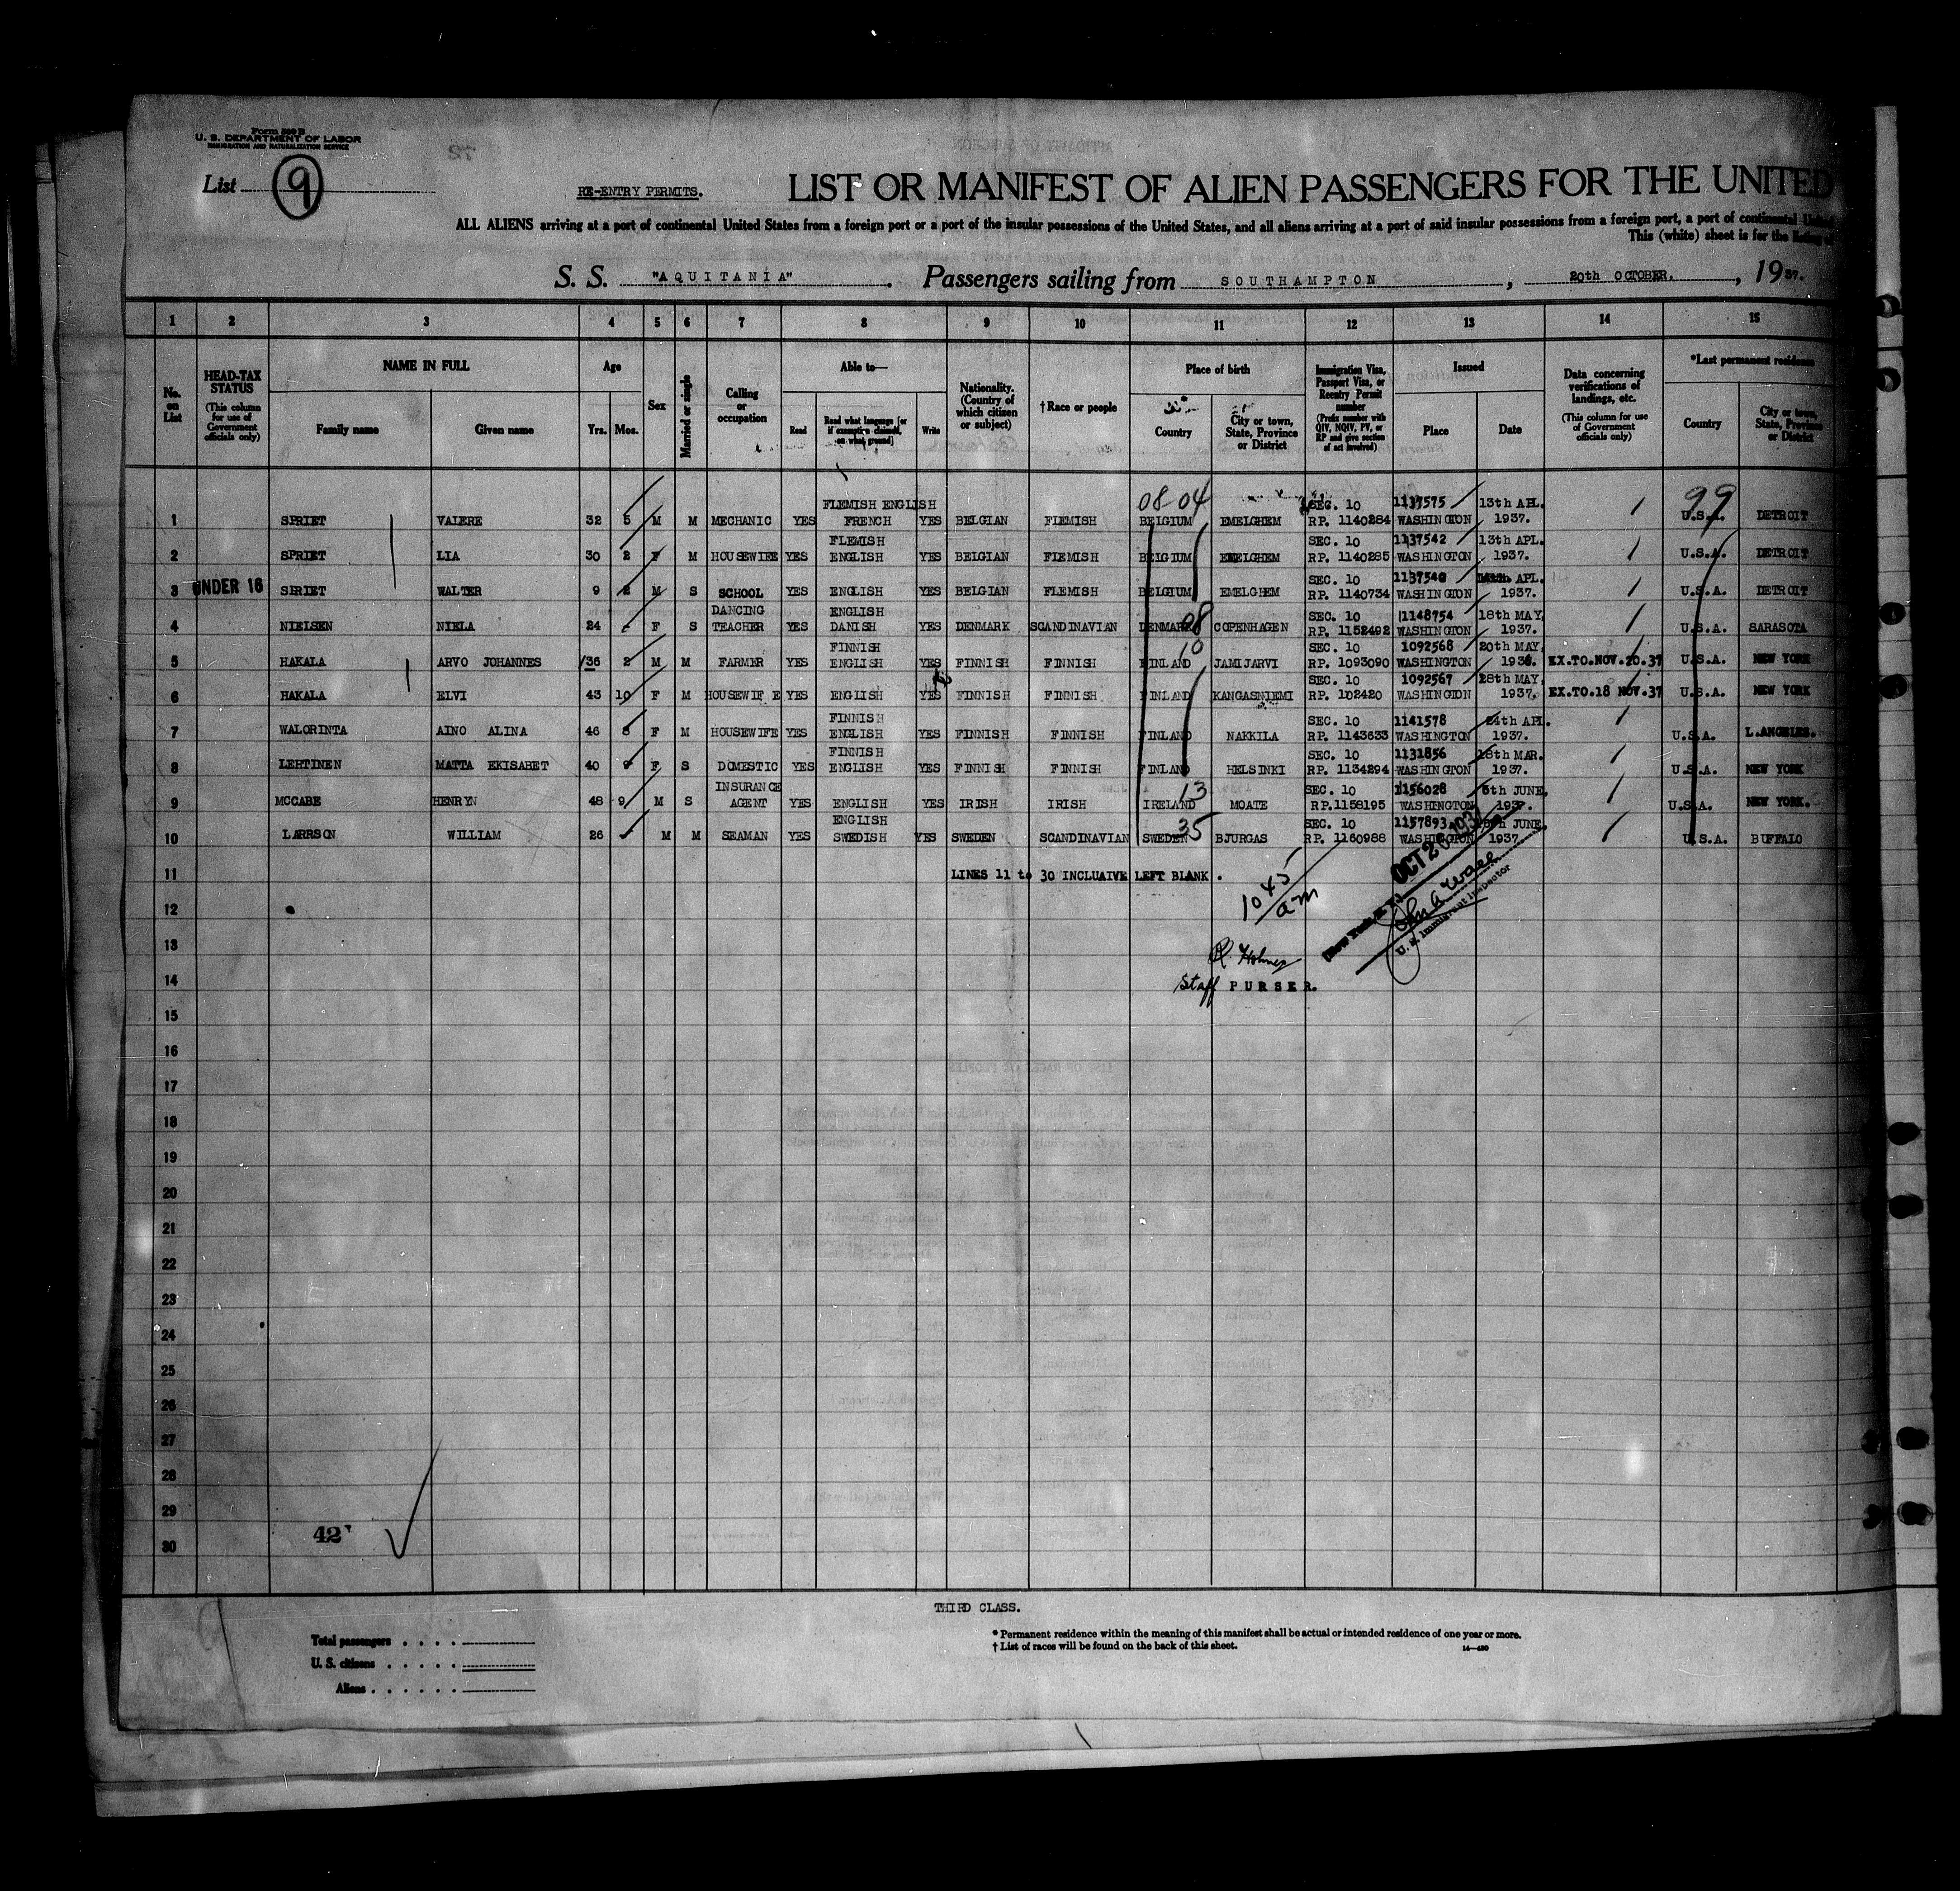 Form 500 B
U. S. DEPARTMENT OF LABOR
IMMIGRATION AND NATURALIZATION SERVICE
List 9
RE-ENTRY PERMITS.
LIST OR MANIFEST OF ALIEN PASSENGERS FOR THE UNITED
ALL ALIENS arriving at a port of continental United States from a foreign port or a port of the insular possessions of the United States, and all aliens arriving at a port of said insular possessions from a foreign port, a port of continental United
This (white) sheet is for the listing
S. S. "AQUITANIA". Passengers sailing from SOUTHAMPTON, 20th OCTOBER., 1937.
1 2 3 4 5 6 7 8 9 10 11 12 13 14 15
No. on List
HEAD-TAX STATUS (This column for use of Government officials only)
NAME IN FULL Family name Given name
Age Yrs. Mos.
Sex
Married or single
Calling or occupation
Able to— Read Read what language [or if exemption claimed, on what ground] Write
Nationality. (Country of which citizen or subject)
† Race or people
Place of birth Country City or town, State, Province or District
Immigration Visa, Passport Visa, or Reentry Permit number (Prefix number with QIV, NQIV, PV, or RP and give section of act involved)
Issued Place Date
Data concerning verifications of landings, etc. (This column for use of Government officials only)
*Last permanent residence Country City or town, State, Province or District
08-04 99
1 SPRIET VALERE 32 5 M M MECHANIC YES FLEMISH ENGLISH FRENCH YES BELGIAN FLEMISH BELGIUM EMELGHEM SEC. 10 RP. 1140284 1137575 WASHINGTON 13th APL. 1937. U.S.A. DETROIT
2 SPRIET LIA 30 2 F M HOUSEWIFE YES FLEMISH ENGLISH YES BELGIAN FLEMISH BELGIUM EMELGHEM SEC. 10 RP. 1140285 1137542 WASHINGTON 13th APL. 1937. U.S.A. DETROIT
3 UNDER 16 SPRIET WALTER 9 2 M S SCHOOL YES ENGLISH YES BELGIAN FLEMISH BELGIUM EMELGHEM SEC. 10 RP. 1140734 1137540 WASHINGTON APL. 1937. U.S.A. DETROIT
4 NIELSEN NIELA 24 - F S DANCING TEACHER YES ENGLISH DANISH YES DENMARK SCANDINAVIAN DENMARK 08 COPENHAGEN SEC. 10 RP. 1152492 1148754 WASHINGTON 18th MAY, 1937. U.S.A. SARASOTA
5 HAKALA ARVO JOHANNES 36 2 M M FARMER YES FINNISH ENGLISH YES FINNISH FINNISH FINLAND 10 JAMIJARVI SEC. 10 RP. 1093090 1092568 WASHINGTON 20th MAY, 1936. EX.TO.NOV.20.37 U.S.A. NEW YORK
6 HAKALA ELVI 43 10 F M HOUSEWIFE YES ENGLISH YES FINNISH FINNISH. FINLAND KANGASNIEMI SEC. 10 RP. 1102420 1092567 WASHINGTON 28th MAY, 1937. EX.TO.18 NOV.37 U.S.A. NEW YORK
7 WALORINTA AINO ALINA 46 8 F M HOUSEWIFE YES FINNISH ENGLISH YES FINNISH FINNISH FINLAND NAKKILA SEC. 10 RP. 1143633 1141578 WASHINGTON 24th APL. 1937. U.S.A. L.ANGELES.
8 LEHTINEN MATTA EKISABET 40 9 F S DOMESTIC YES FINNISH ENGLISH YES FINNISH FINNISH FINLAND HELSINKI SEC. 10 RP. 1134294 1131856 WASHINGTON 18th MAR. 1937. U.S.A. NEW YORK
9 MCCABE HENRYN 48 9 M S INSURANCE AGENT YES ENGLISH YES IRISH IRISH IRELAND 13 MOATE SEC. 10 RP.1158195 1156028 WASHINGTON 5th JUNE, 1937. U.S.A. NEW YORK.
10 LARRSON WILLIAM 26 - M M SEAMAN YES ENGLISH SWEDISH YES SWEDEN SCANDINAVIAN SWEDEN 35 BJURGAS SEC. 10 RP. 1160988 1157893 WASHINGTON JUNE, 1937. U.S.A. BUFFALO
11 LINES 11 to 30 INCLUAIVE LEFT BLANK.
12
13
14
15
16
17
18
19
20
21
22
23
24
25
26
27
28
29
30
1045 am
OCT 26 1937
New York
U. S. Immigrant Inspector
R. Holmes
Staff PURSER.
42
THIRD CLASS.
Total passengers
U. S. citizens
Aliens
* Permanent residence within the meaning of this manifest shall be actual or intended residence of one year or more.
† List of races will be found on the back of this sheet.
14—480